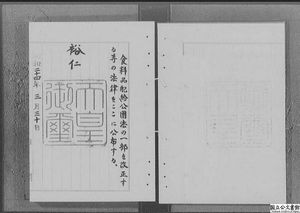 食料品配給公団法の一部を改正す
る等の法律をここに公布する。
裕仁
天皇
御璽
昭和二十四年三月三十一日
国立公文書館